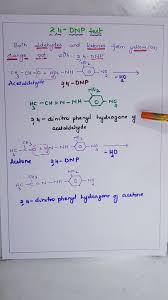 2,4-DNP test
Both aldehydes and ketones form yellow (or)
orange ppt with 2,4-DNP.
NO₂
-H₂O
Acetaldehyde 2,4-DNP
NO₂
H₃C CH=N-NH NO₂
2,4-dinitro phenyl hydrazone of
acetaldehyde
NO₂
-H₂O
Acetone 2,4-DNP
NO₂
2,4-dinitro phenyl hydrazone of acetone